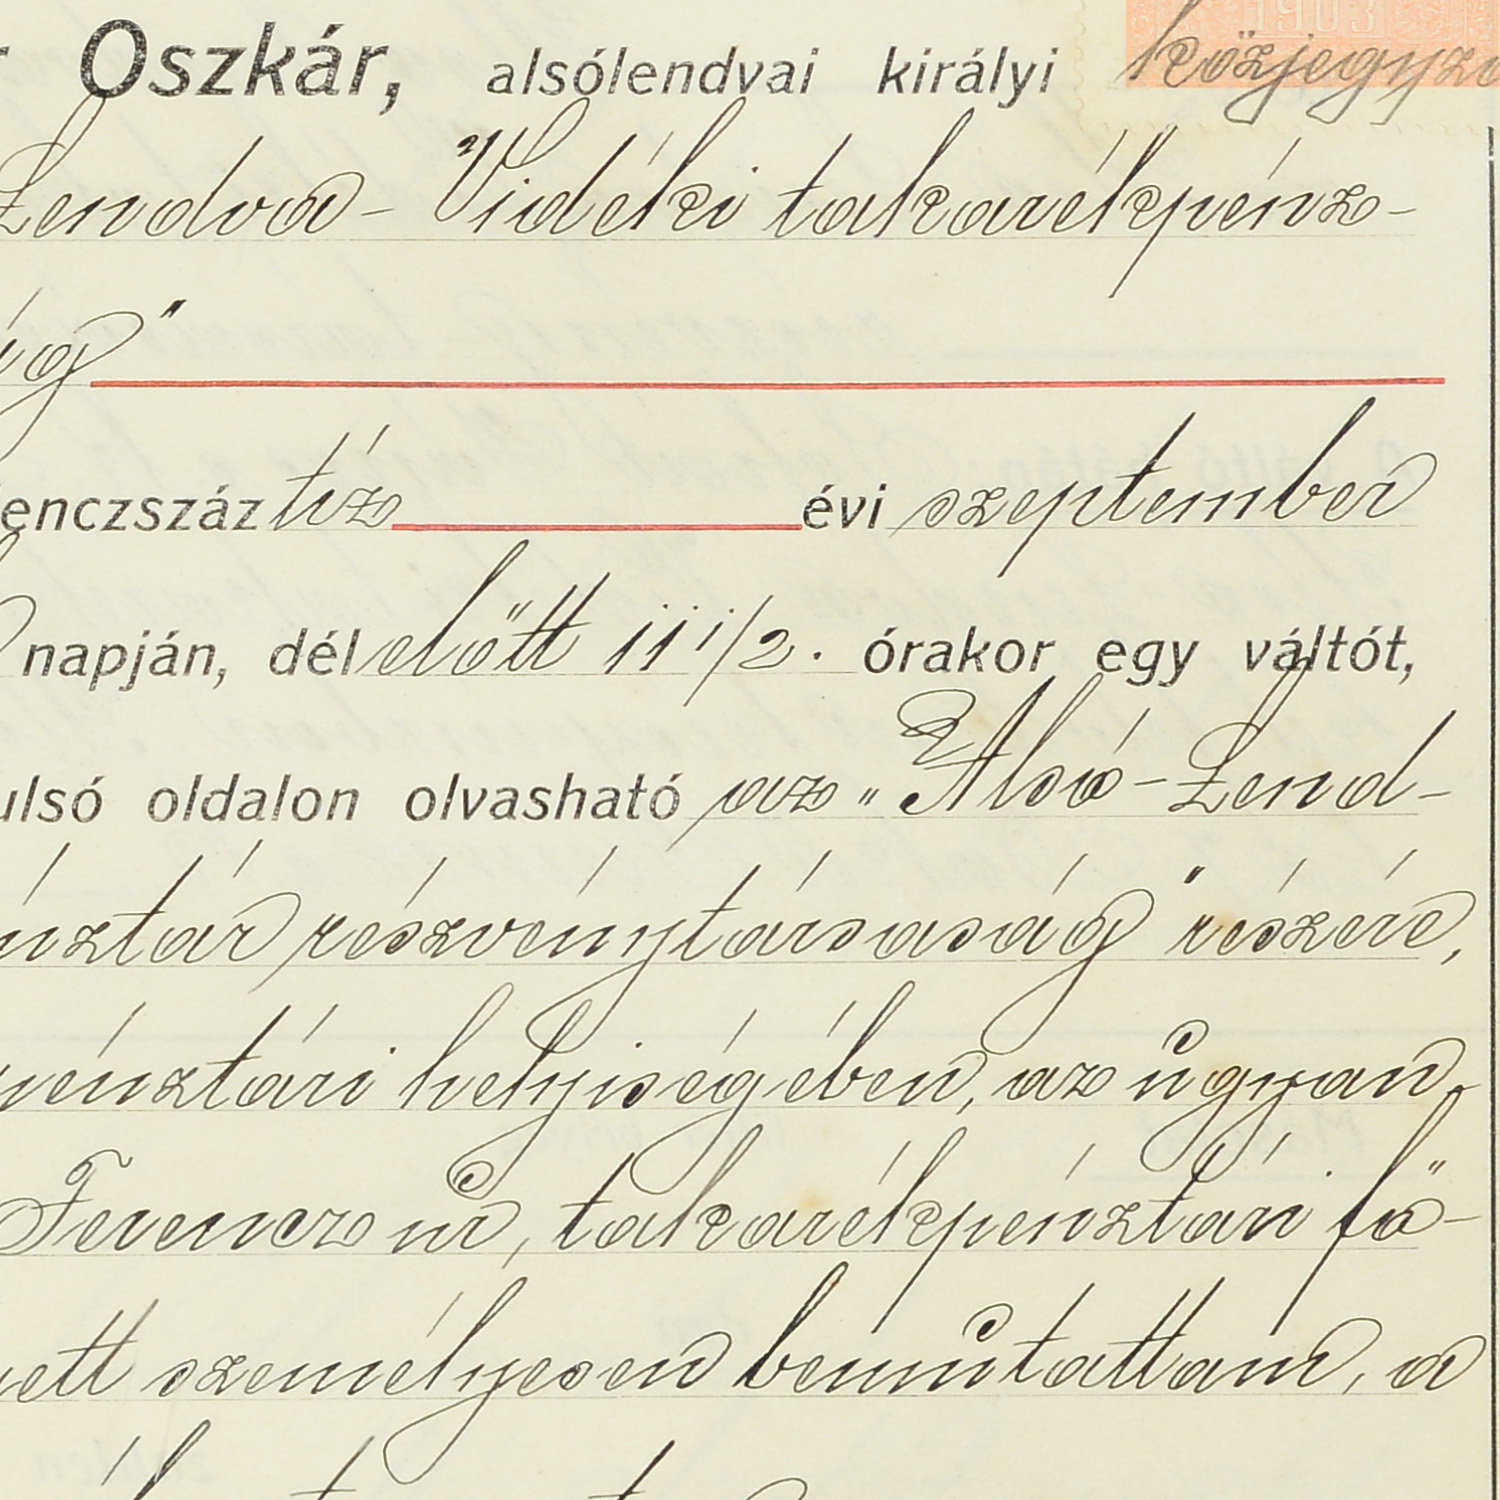 Oszkár, alsólendvai királyi közjegyző
Lendva - Vidéki takarékpénz-
ág"
lenczszáz tíz évi szeptember
napján, délelőtt 11 1/2. órakor egy váltót,
ulsó oldalon olvasható az „Alsó-Lend-
énztár részvénytársaság" részére,
pénztári helyiségében, az ugyan,
Ferencz úr, takarékpénztári fő-
lett személyesen bemutattam, a